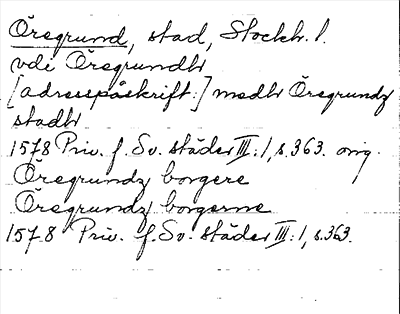 Öregrund, stad, Stockh. l.
vdi Öregrundh
[adresspåskrift:] medh Öregrundz
stadh
1578 Priv. f. Sv. städer III:1, s. 363. orig.
Öregrundz borgere
Öregrundz borgerne
1578 Priv. f. Sv. städer III:1, s. 363.